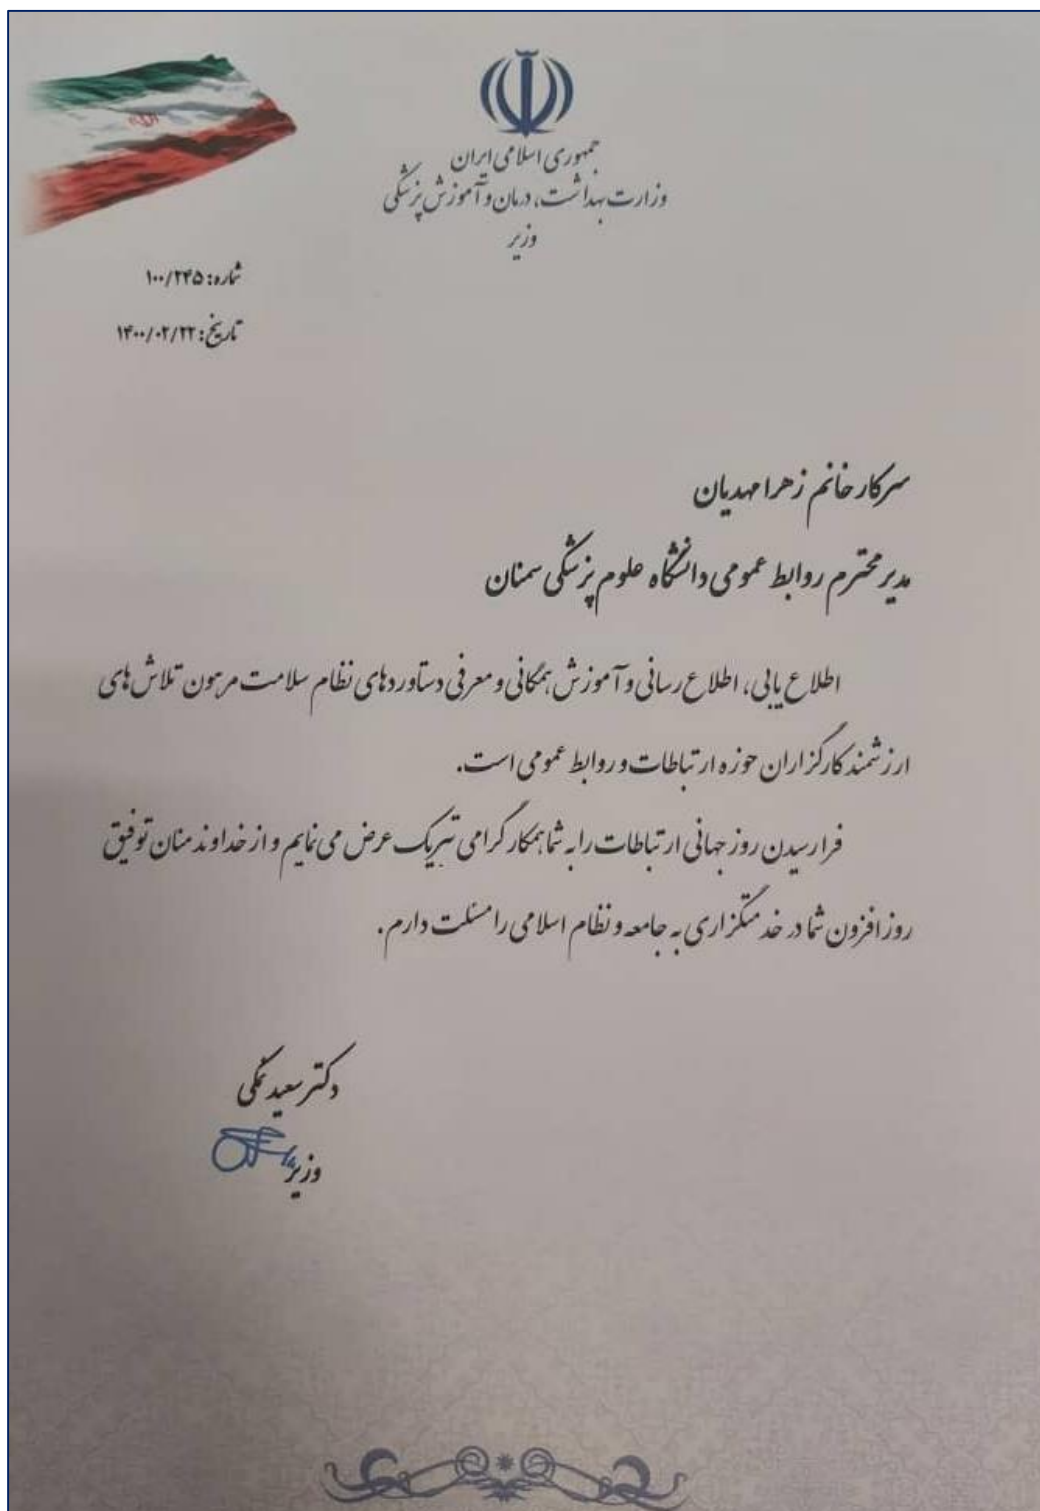 جمهوری اسلامی ایران
وزارت بهداشت، درمان و آموزش پزشکی
وزیر
شماره: ۱۰۰/۲۴۵
تاریخ: ۱۴۰۰/۰۲/۲۲
سرکار خانم زهرا مهدیان
مدیر محترم روابط عمومی دانشگاه علوم پزشکی سمنان
اطلاع یابی، اطلاع رسانی و آموزش همگانی و معرفی دستاوردهای نظام سلامت مرهون تلاش های
ارزشمند کارگزاران حوزه ارتباطات و روابط عمومی است.
فرارسیدن روز جهانی ارتباطات را به شما همکار گرامی تبریک عرض می نمایم و از خداوند منان توفیق
روز افزون شما در خدمتگزاری به جامعه و نظام اسلامی را مسئلت دارم.
دکتر سعید نمکی
وزیر